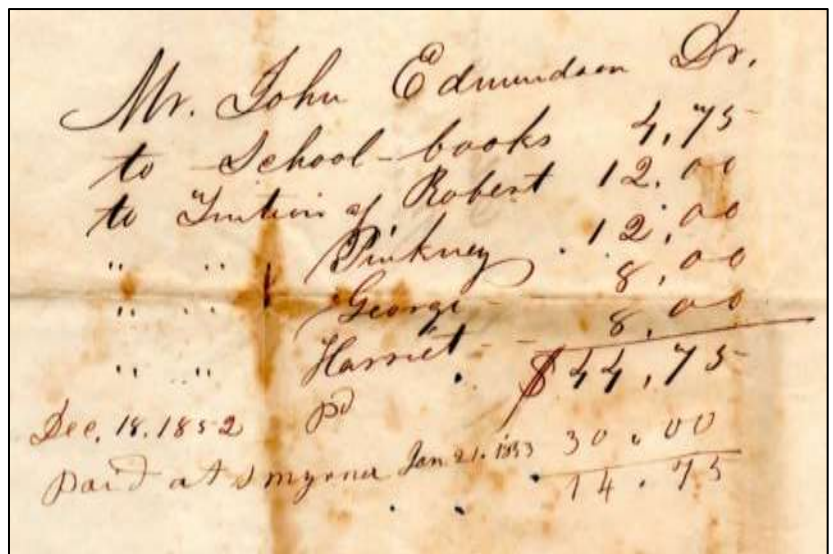 Mr. John Edmundson Dr.
to School-books 4,75
to Tuition of Robert 12.00
" " Pinkney 12.00
" " George 8.00
" " Harriet 8.00
$44,75
Dec. 18. 1852 pd 30.00
Paid at Smyrna Jan 21. 1853 14.75